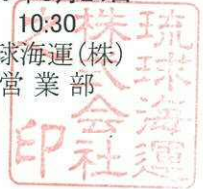 10:30
球海運(株)
営業部
琉球海運
株式会社
印